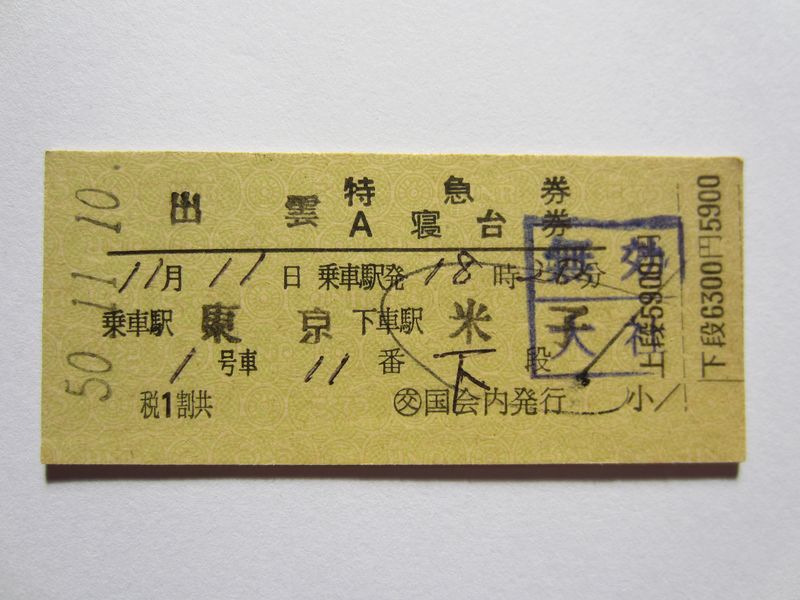 50.11.10.
出雲 特急券
A寝台券
11月11日 乗車駅発 18時20分
乗車駅 東京 下車駅 米子
1号車 11番 下段
税1割共 ㊋国会内発行 小
上段5900円
下段6300円5900
無効
大社